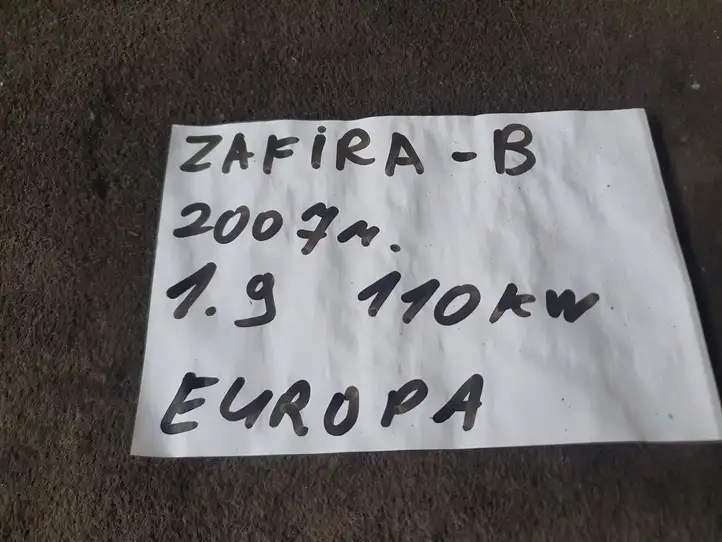 ZAFiRA - B
2007м.
1.9 110kw
EUROPA